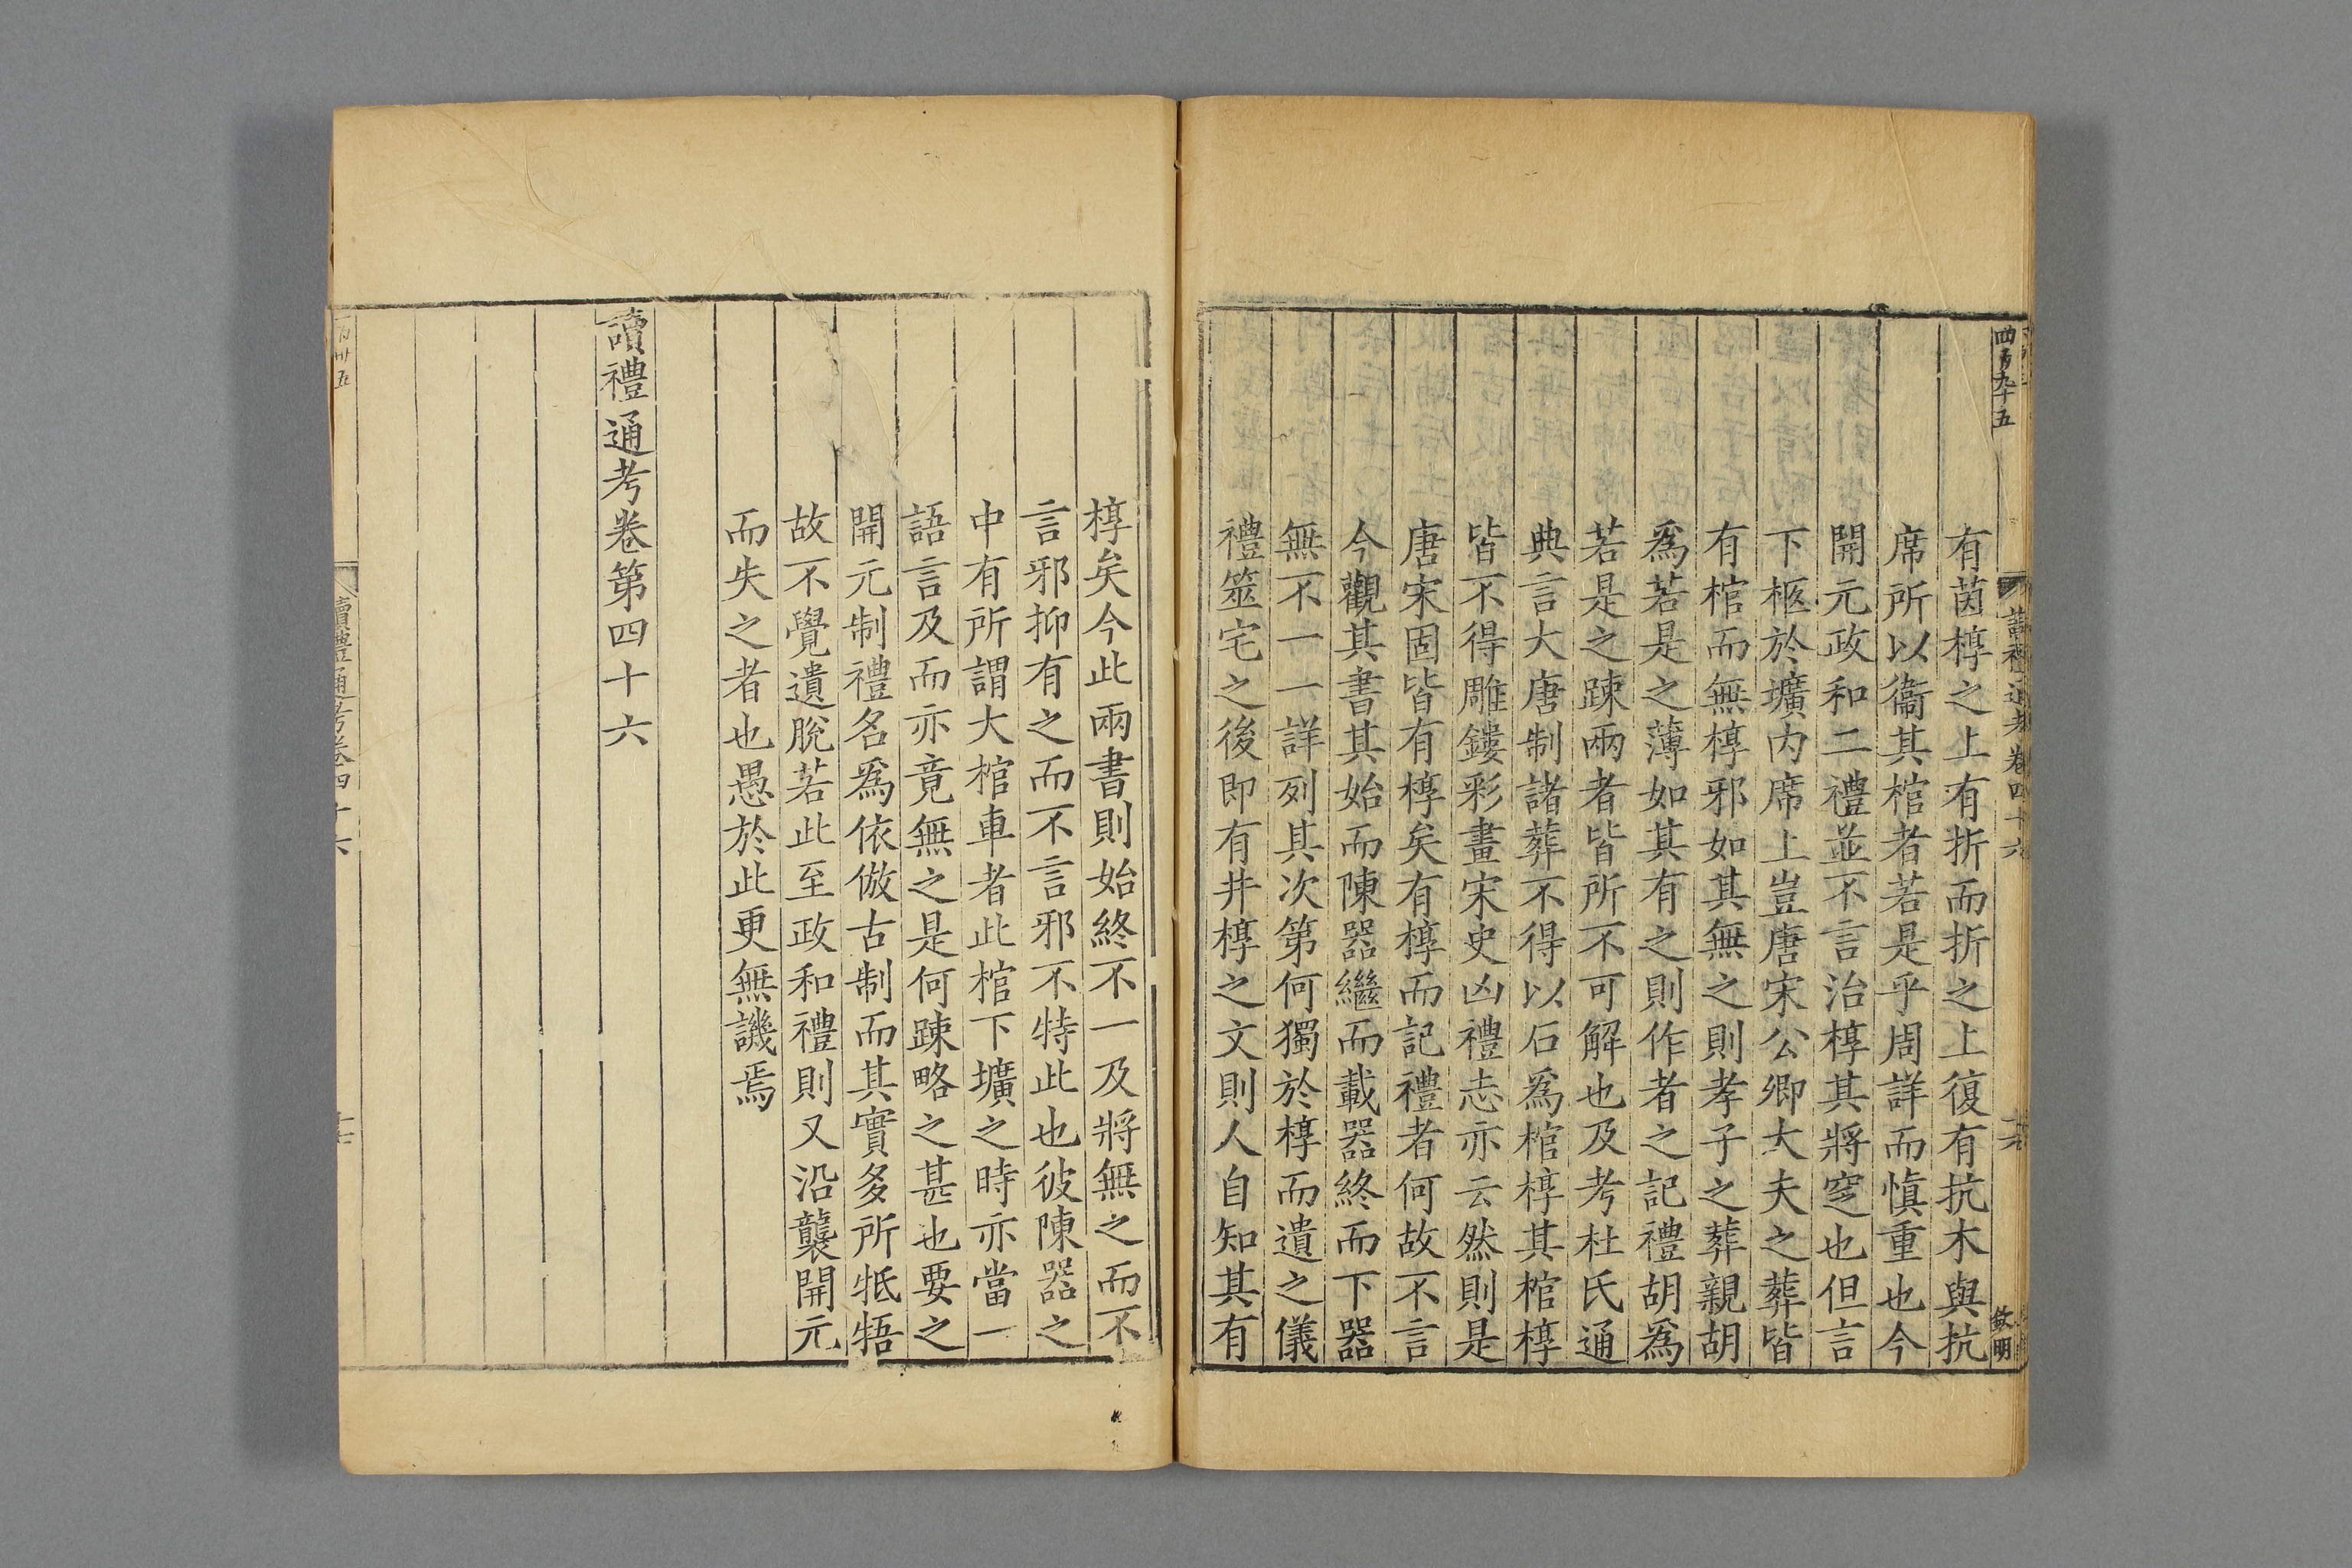 四百九十五
讀禮通考卷四十六
敘明
有茵椁之上有折而折之上復有抗木與抗
席所以衞其棺者若是乎周詳而愼重也今
開元政和二禮並不言治椁其將窆也但言
下柩於壙内席上豈唐宋公卿大夫之葬皆
有棺而無椁邪如其無之則孝子之葬親胡
爲若是之薄如其有之則作者之記禮胡爲
若是之踈兩者皆所不可解也及考杜氏通
典言大唐制諸葬不得以石爲棺椁其棺椁
皆不得雕鏤彩畫宋史凶禮志亦云然則是
唐宋固皆有椁矣有椁而記禮者何故不言
今觀其書其始而陳器繼而載器終而下器
無不一一詳列其次第何獨於椁而遺之儀
禮筮宅之後即有井椁之文則人自知其有
椁矣今此兩書則始終不一及將無之而不
言邪抑有之而不言邪不特此也彼陳器之
中有所謂大棺車者此棺下壙之時亦當一
語言及而亦竟無之是何踈略之甚也要之
開元制禮名爲依倣古制而其實多所牴牾
故不覺遺脫若此至政和禮則又沿襲開元
而失之者也愚於此更無譏焉
讀禮通考卷第四十六
讀禮通考卷四十六